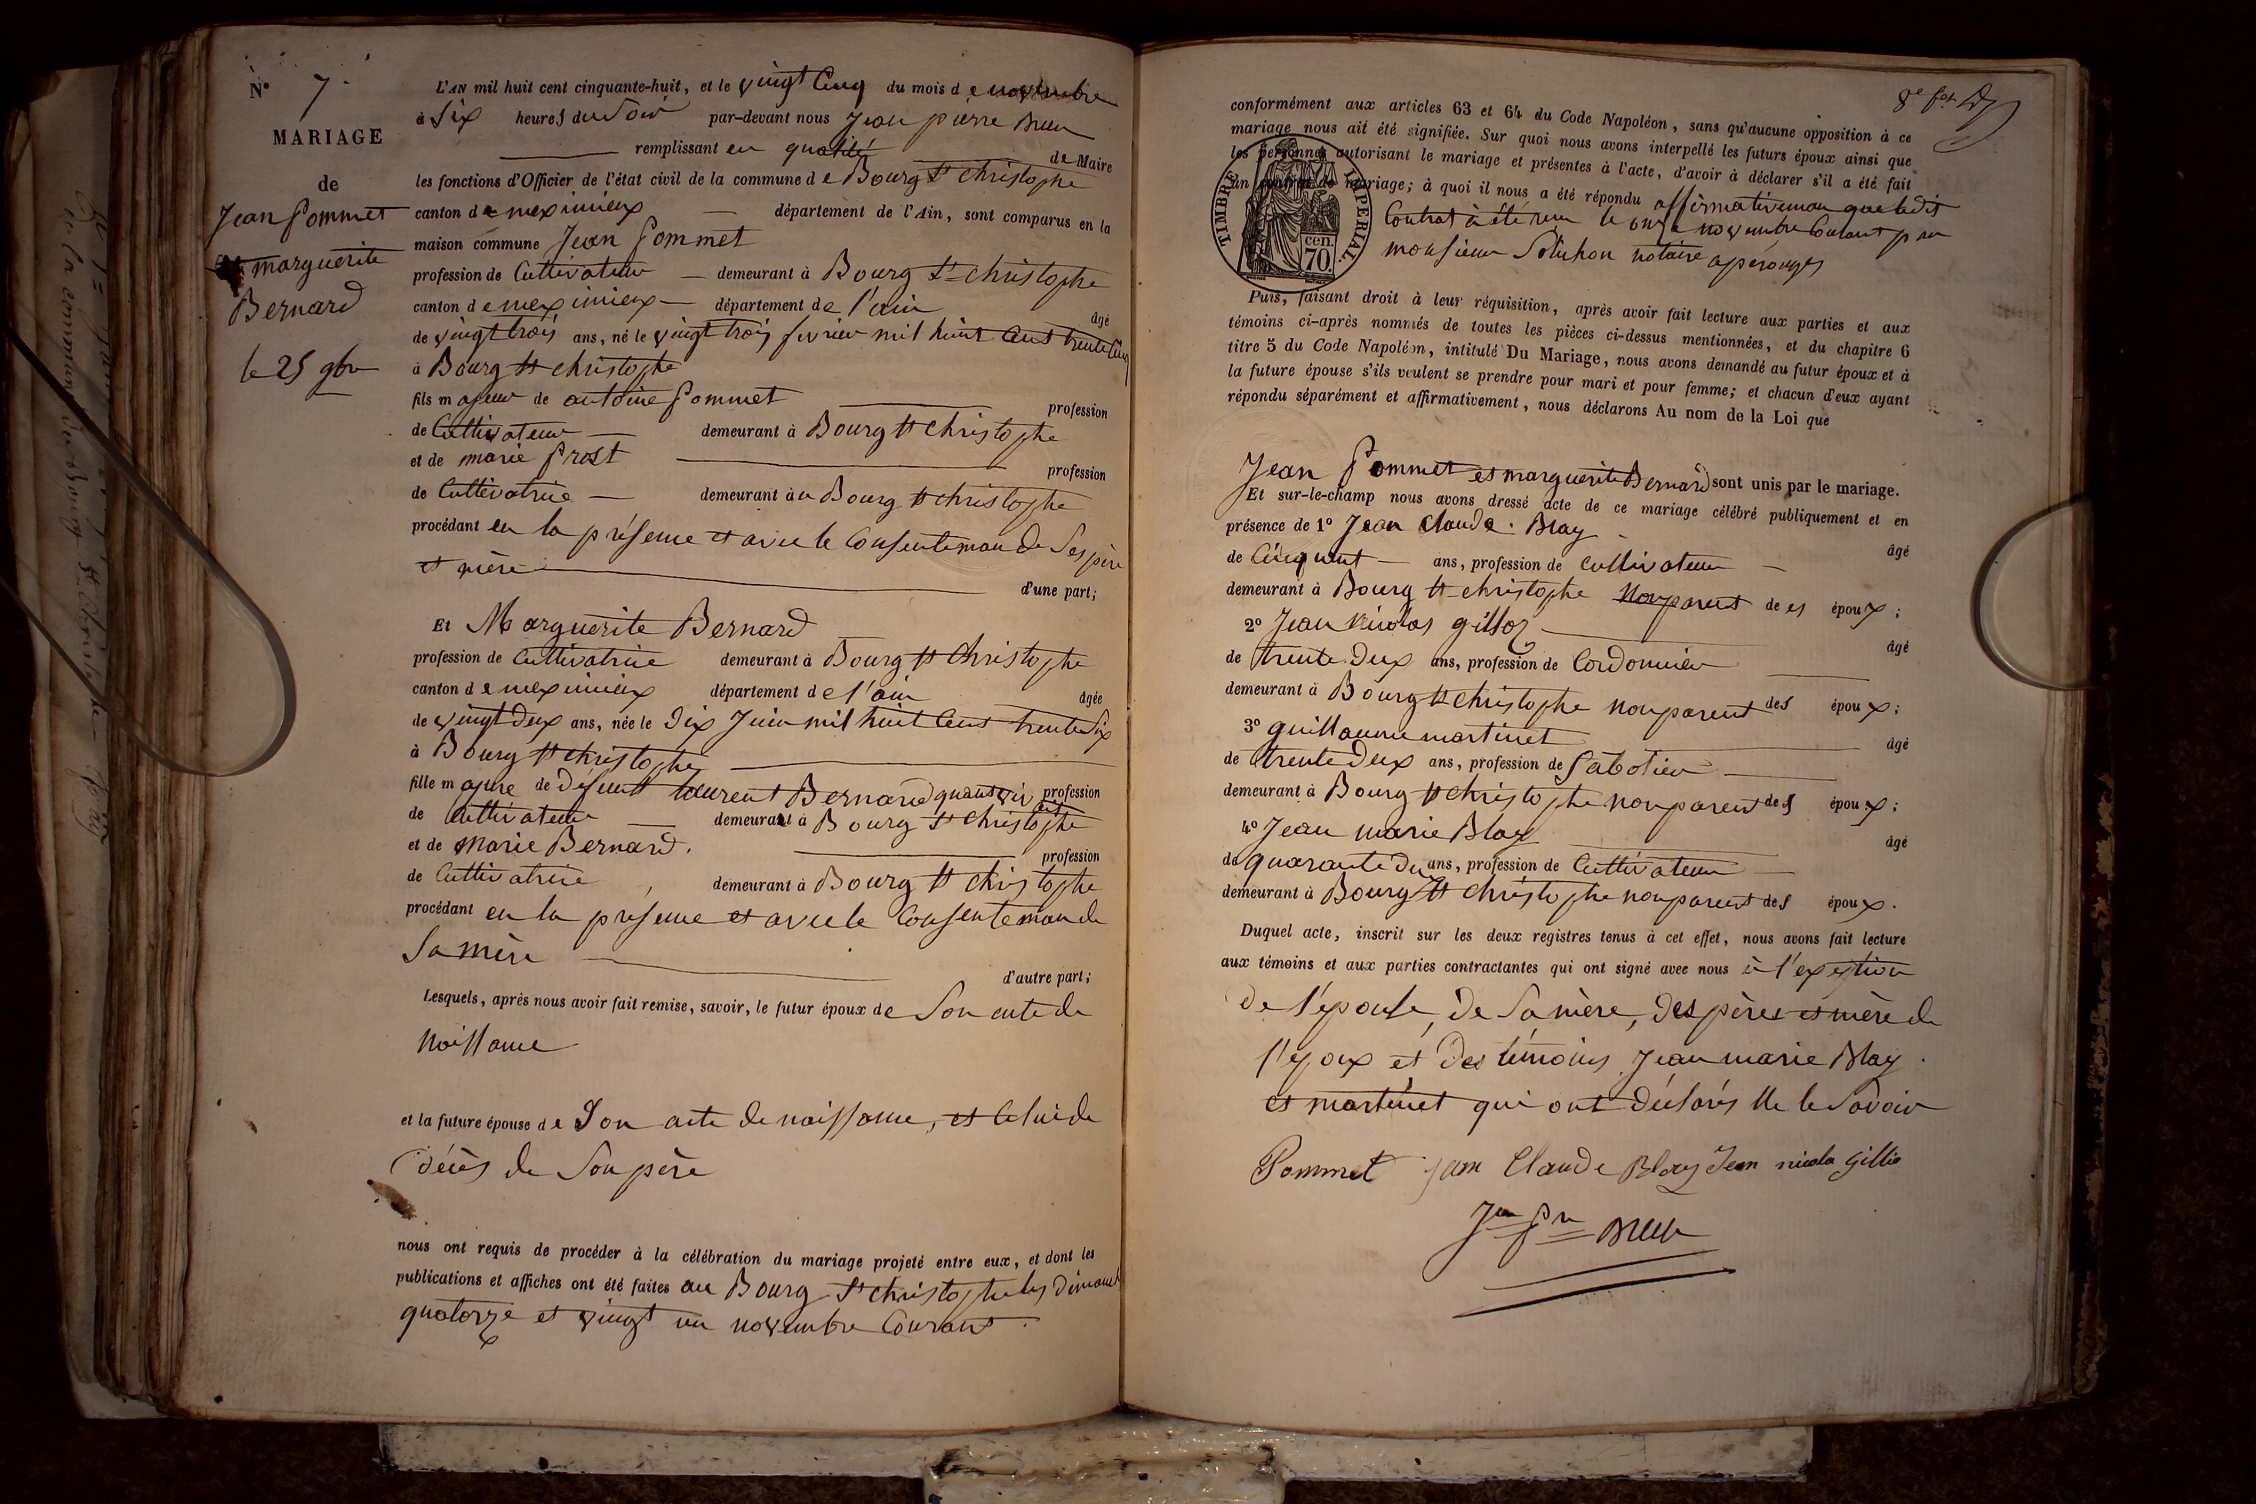 N° 7.
MARIAGE
de
Jean Pommet
et marguerite
Bernard
le 25 9bre
L'AN mil huit cent cinquante-huit, et le vingt Cinq du mois de novembre
à Six heures du Soir par-devant nous Jean pierre
remplissant en qualité de Maire
les fonctions d'Officier de l'état civil de la commune de Bourg St christophe
canton de meximieux département de l'Ain, sont comparus en la
maison commune Jean Pommet
profession de Cultivateur demeurant à Bourg St christophe
canton de meximieux département de l'ain âgé
de vingt trois ans, né le vingt trois fevrier mil huit Cent trente Cinq
à Bourg St christophe
fils majeur de antoine Pommet profession
de Cultivateur demeurant à Bourg St christophe
et de marie Prost profession
de Cultivatrice demeurant à u Bourg St christophe
procédant en la présence et avec le Consenteman de Ses père
et mère d'une part;
Et Marguerite Bernard
profession de Cultivatrice demeurant à Bourg St Christophe
canton de meximieux département de l'ain âgée
de vingt deux ans, née le Dix Juin mil huit Cent trente Six
à Bourg St christophe
fille majure de défunt laurent Bernard quand vivait profession
de Cultivateur demeurant à Bourg St christophe
et de Marie Bernard. profession
de Cultivatrice demeurant à Bourg St christophe
procédant en la présence et avec le Consenteman de
Sa mère d'autre part;
Lesquels, après nous avoir fait remise, savoir, le futur époux de Son acte de
Naissance
et la future épouse de Son acte de naissance, et Celui de
décès de Son père
nous ont requis de procéder à la célébration du mariage projeté entre eux, et dont les
publications et affiches ont été faites au Bourg St christophe les Dimanche
quatorze et vingt un novembre Courant.
conformément aux articles 63 et 64 du Code Napoléon, sans qu'aucune opposition à ce
mariage nous ait été signifiée. Sur quoi nous avons interpellé les futurs époux ainsi que
les personnes autorisant le mariage et présentes à l'acte, d'avoir à déclarer s'il a été fait
un contrat de mariage; à quoi il nous a été répondu affirmativeman que ledit
Contrat à été reçu le onze novembre Courant par
monsieur notaire a perouges
TIMBRE IMPERIAL.
70 cen.
Puis, faisant droit à leur réquisition, après avoir fait lecture aux parties et aux
témoins ci-après nommés de toutes les pièces ci-dessus mentionnées, et du chapitre 6
titre 5 du Code Napoléon, intitulé Du Mariage, nous avons demandé au futur époux et à
la future épouse s'ils veulent se prendre pour mari et pour femme; et chacun d'eux ayant
répondu séparément et affirmativement, nous déclarons Au nom de la Loi que
Jean Pommet et marguerite Bernard sont unis par le mariage.
Et sur-le-champ nous avons dressé acte de ce mariage célébré publiquement et en
présence de 1° Jean Claude Blay âgé
de Cinquant ans, profession de Cultivateur
demeurant à Bourg St christophe Non parent de es époux;
2° Jean Nicolas âgé
de trente Deux ans, profession de Cordonnier
demeurant à Bourg St christophe non parent des époux;
3° guillaume martinet âgé
de trente Deux ans, profession de Sabotier
demeurant à Bourg St christophe non parent des époux;
4° Jean marie Blay âgé
de quarante Deux ans, profession de Cultivateur
demeurant à Bourg St christophe non parent des époux.
Duquel acte, inscrit sur les deux registres tenus à cet effet, nous avons fait lecture
aux témoins et aux parties contractantes qui ont signé avec nous à l'exeption
de l'épouse, de Sa mère, Des pères et mère de
l'époux et Des témoins Jean marie Blay
et martinet qui ont Déclarés Ne le Savoir
Pommet Jean Claude Blay Jean nicola Gillio